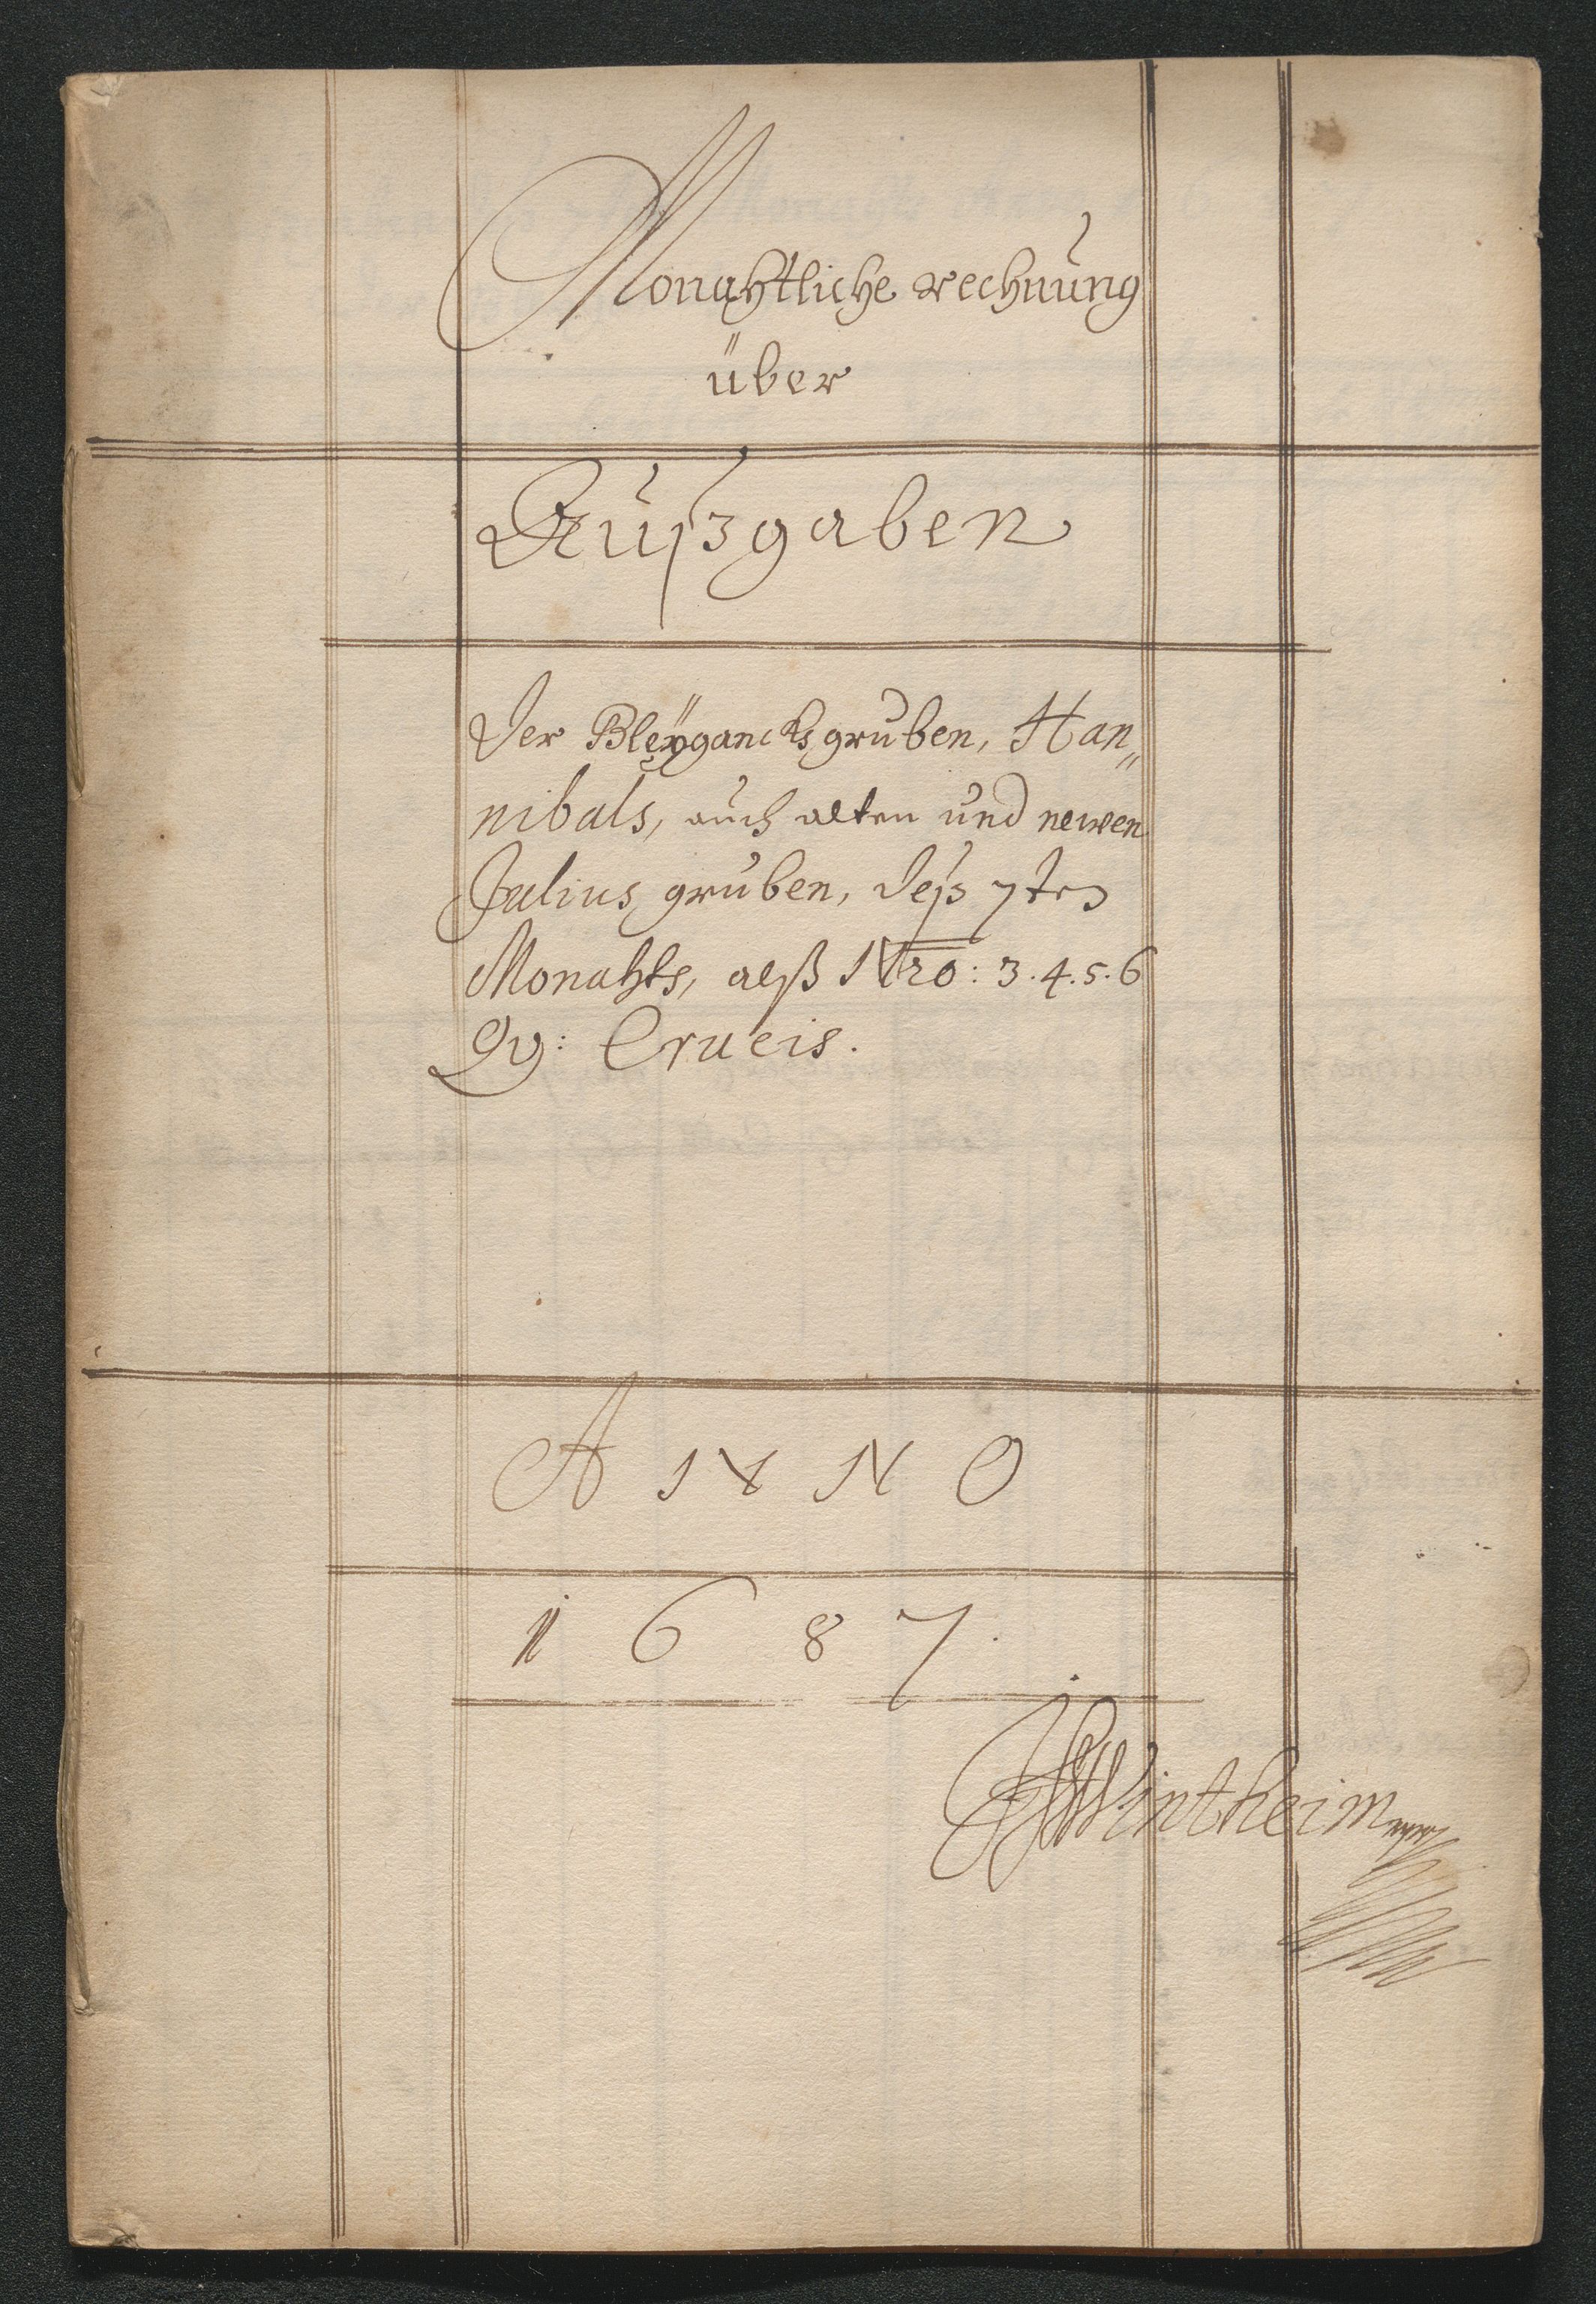 Monahtliche rechnung
über
Außgaben
Der Bleÿgancks gruben, Han„
nibals, auch alten und newen
Julius gruben, deß 7ten
Monahts, alß Nro: 3. 4. 5. 6
Qv: Crucis.
ANNO
1687.
Wintheim